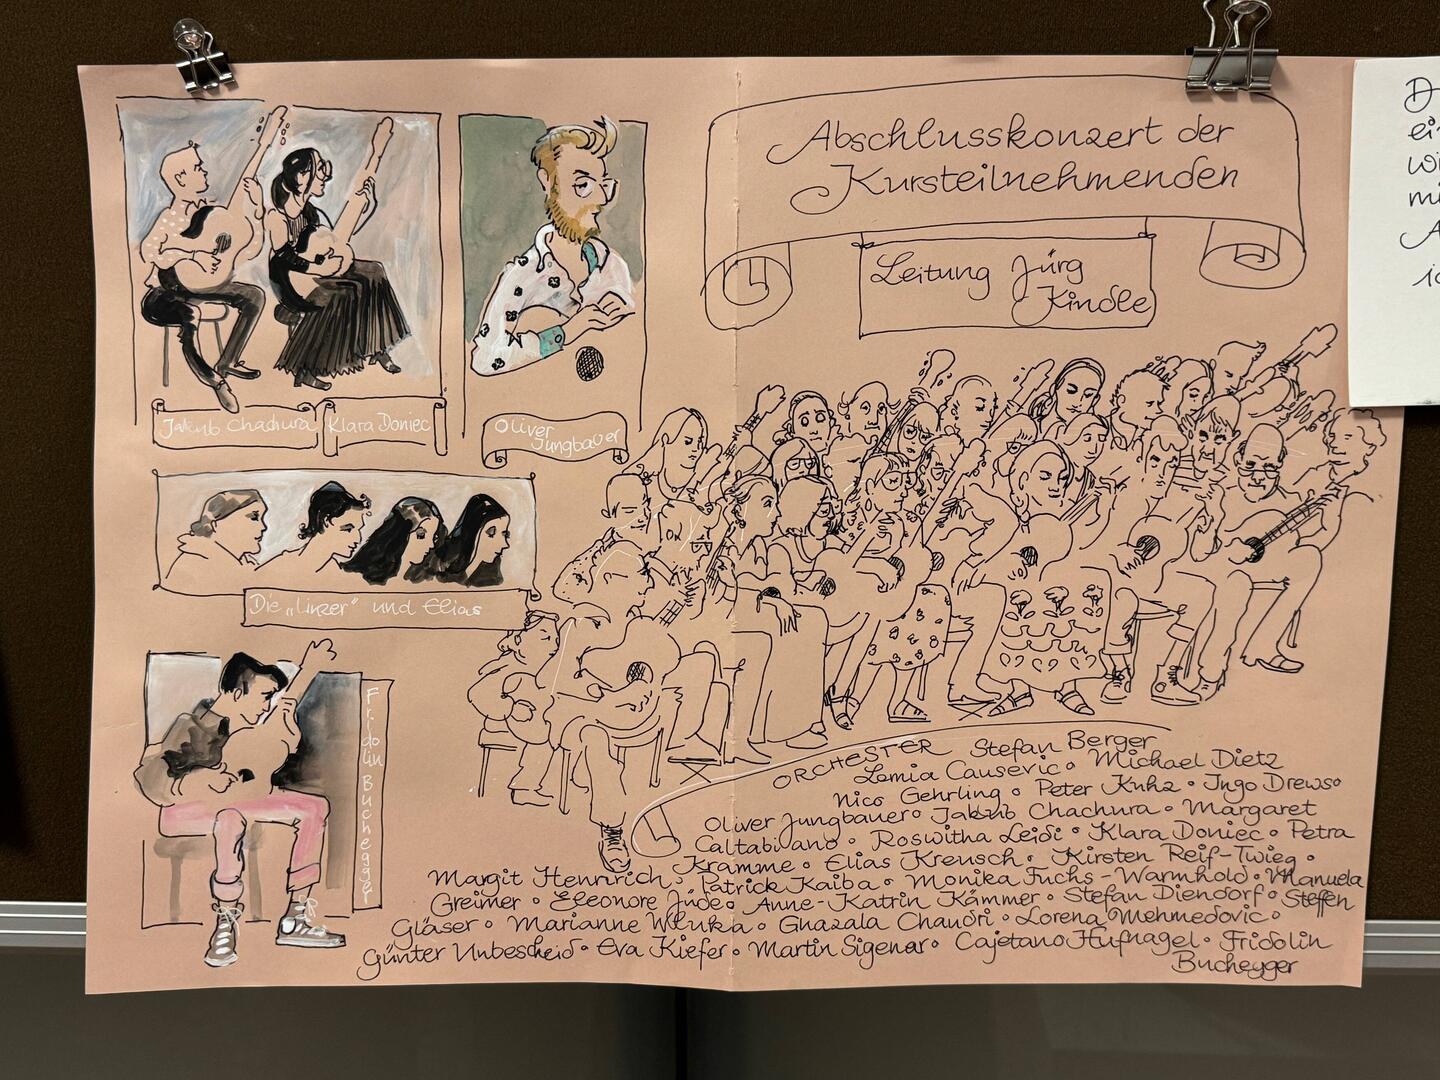 Abschlusskonzert der
Kursteilnehmenden
Leitung Jürg
Kindle
Jakub Chachura
Klara Doniec
Oliver
Jungbauer
Die „Linzer" und Elias
Fridolin Buchegger
ORCHESTER Stefan Berger
Lamia Causevic • Michael Dietz
Nico Gehrling • Peter Kuhz • Ingo Drewso
Oliver Jungbauer • Jakub Chachura • Margaret
Caltabiano • Roswitha Leidi • Klara Doniec • Petra
Kramme • Elias Kreusch • Kirsten Reif-Twieg •
Margit Hennrich • Patrick Kaiba • Monika Fuchs-Warmhold • Manuela
Greimer • Eleonore Jüde • Anne-Katrin Kämmer • Stefan Diendorf • Steffen
Gläser • Marianne Wluka • Ghazala Chaudri • Lorena Mehmedovic •
Günter Unbescheid • Eva Kiefer • Martin Sigenar • Cajetano Hufnagel • Fridolin
Buchegger